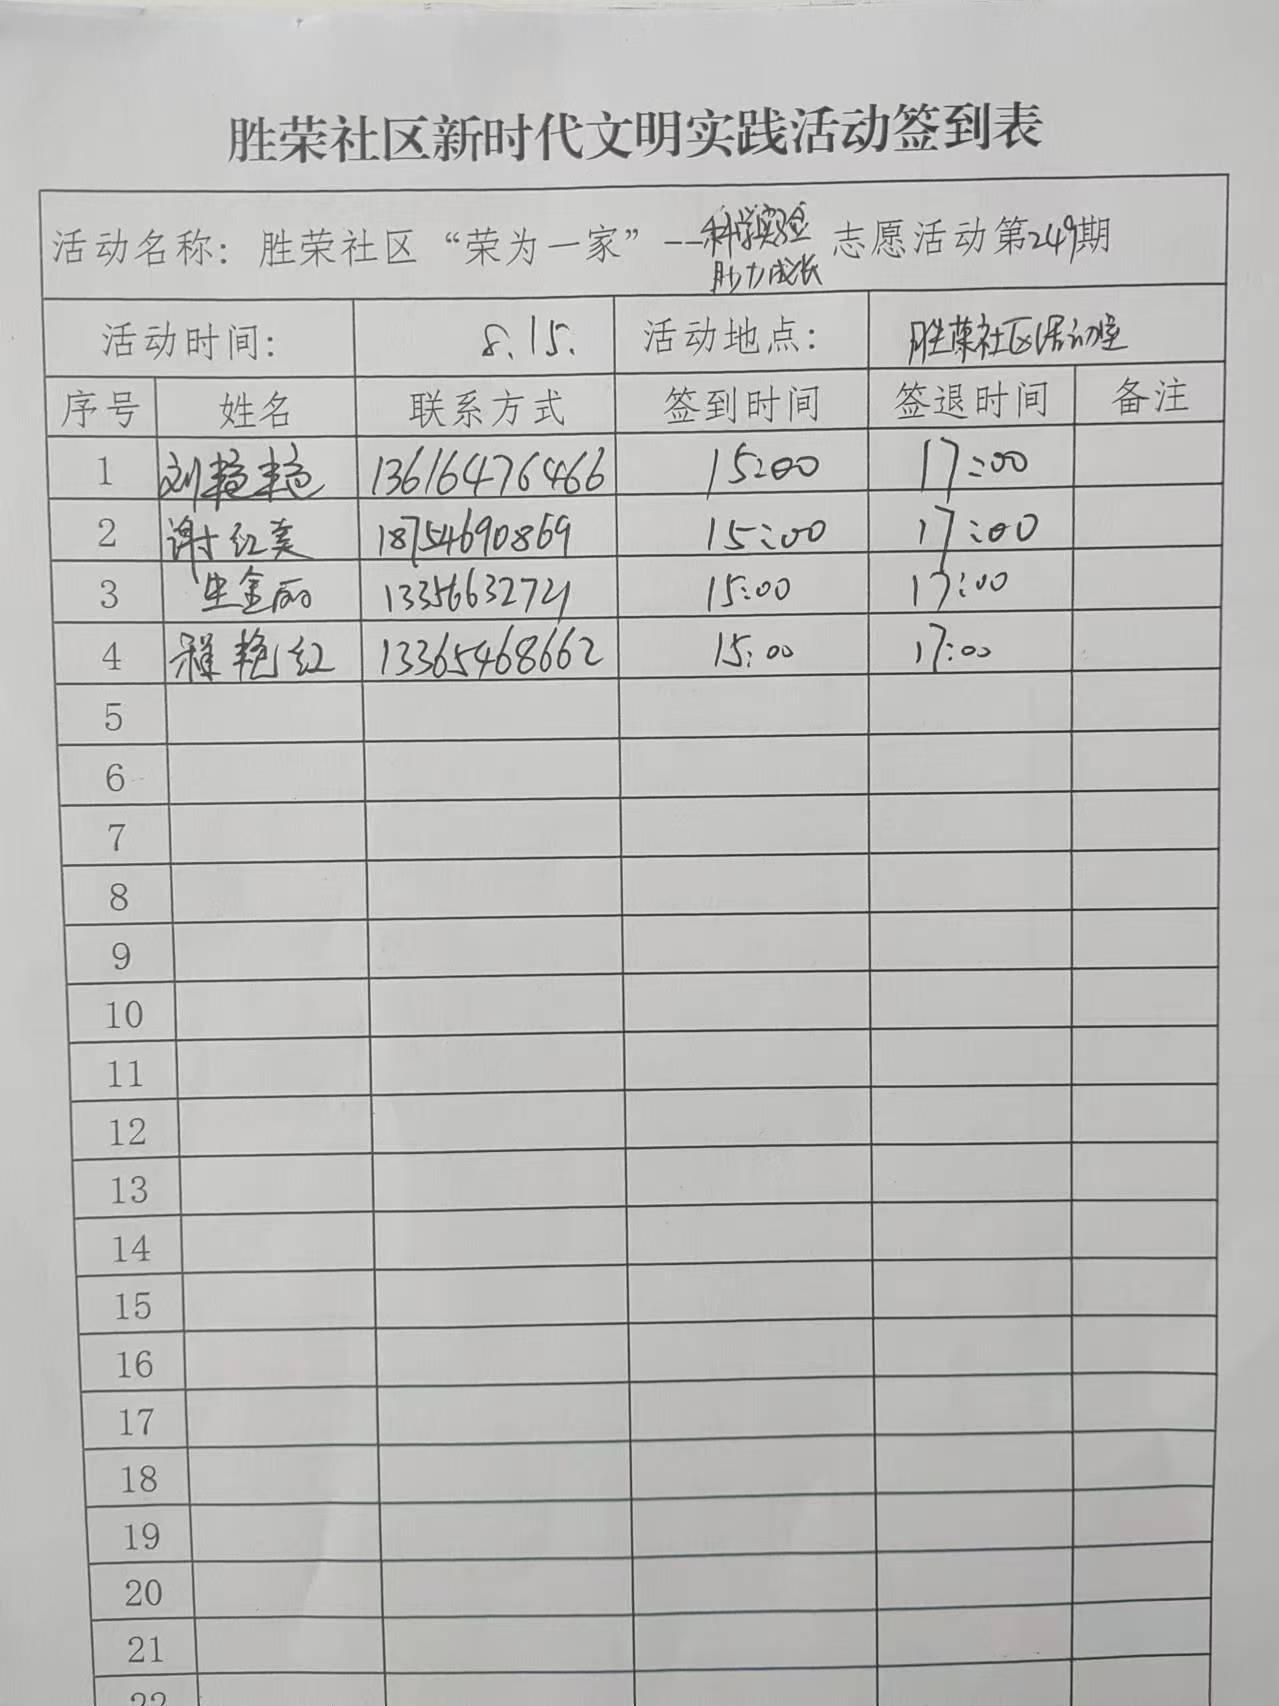 胜荣社区新时代文明实践活动签到表
活动名称：胜荣社区“荣为一家”--科学实验 助力成长 志愿活动第249期
活动时间： 8.15. 活动地点： 胜荣社区活动室
序号 姓名 联系方式 签到时间 签退时间 备注
1 刘艳艳 13616476466 15:00 17:00
2 谢红美 18754690869 15:00 17:00
3 生金丽 13356632721 15:00 17:00
4 程艳红 13365468662 15:00 17:00
5
6
7
8
9
10
11
12
13
14
15
16
17
18
19
20
21
22